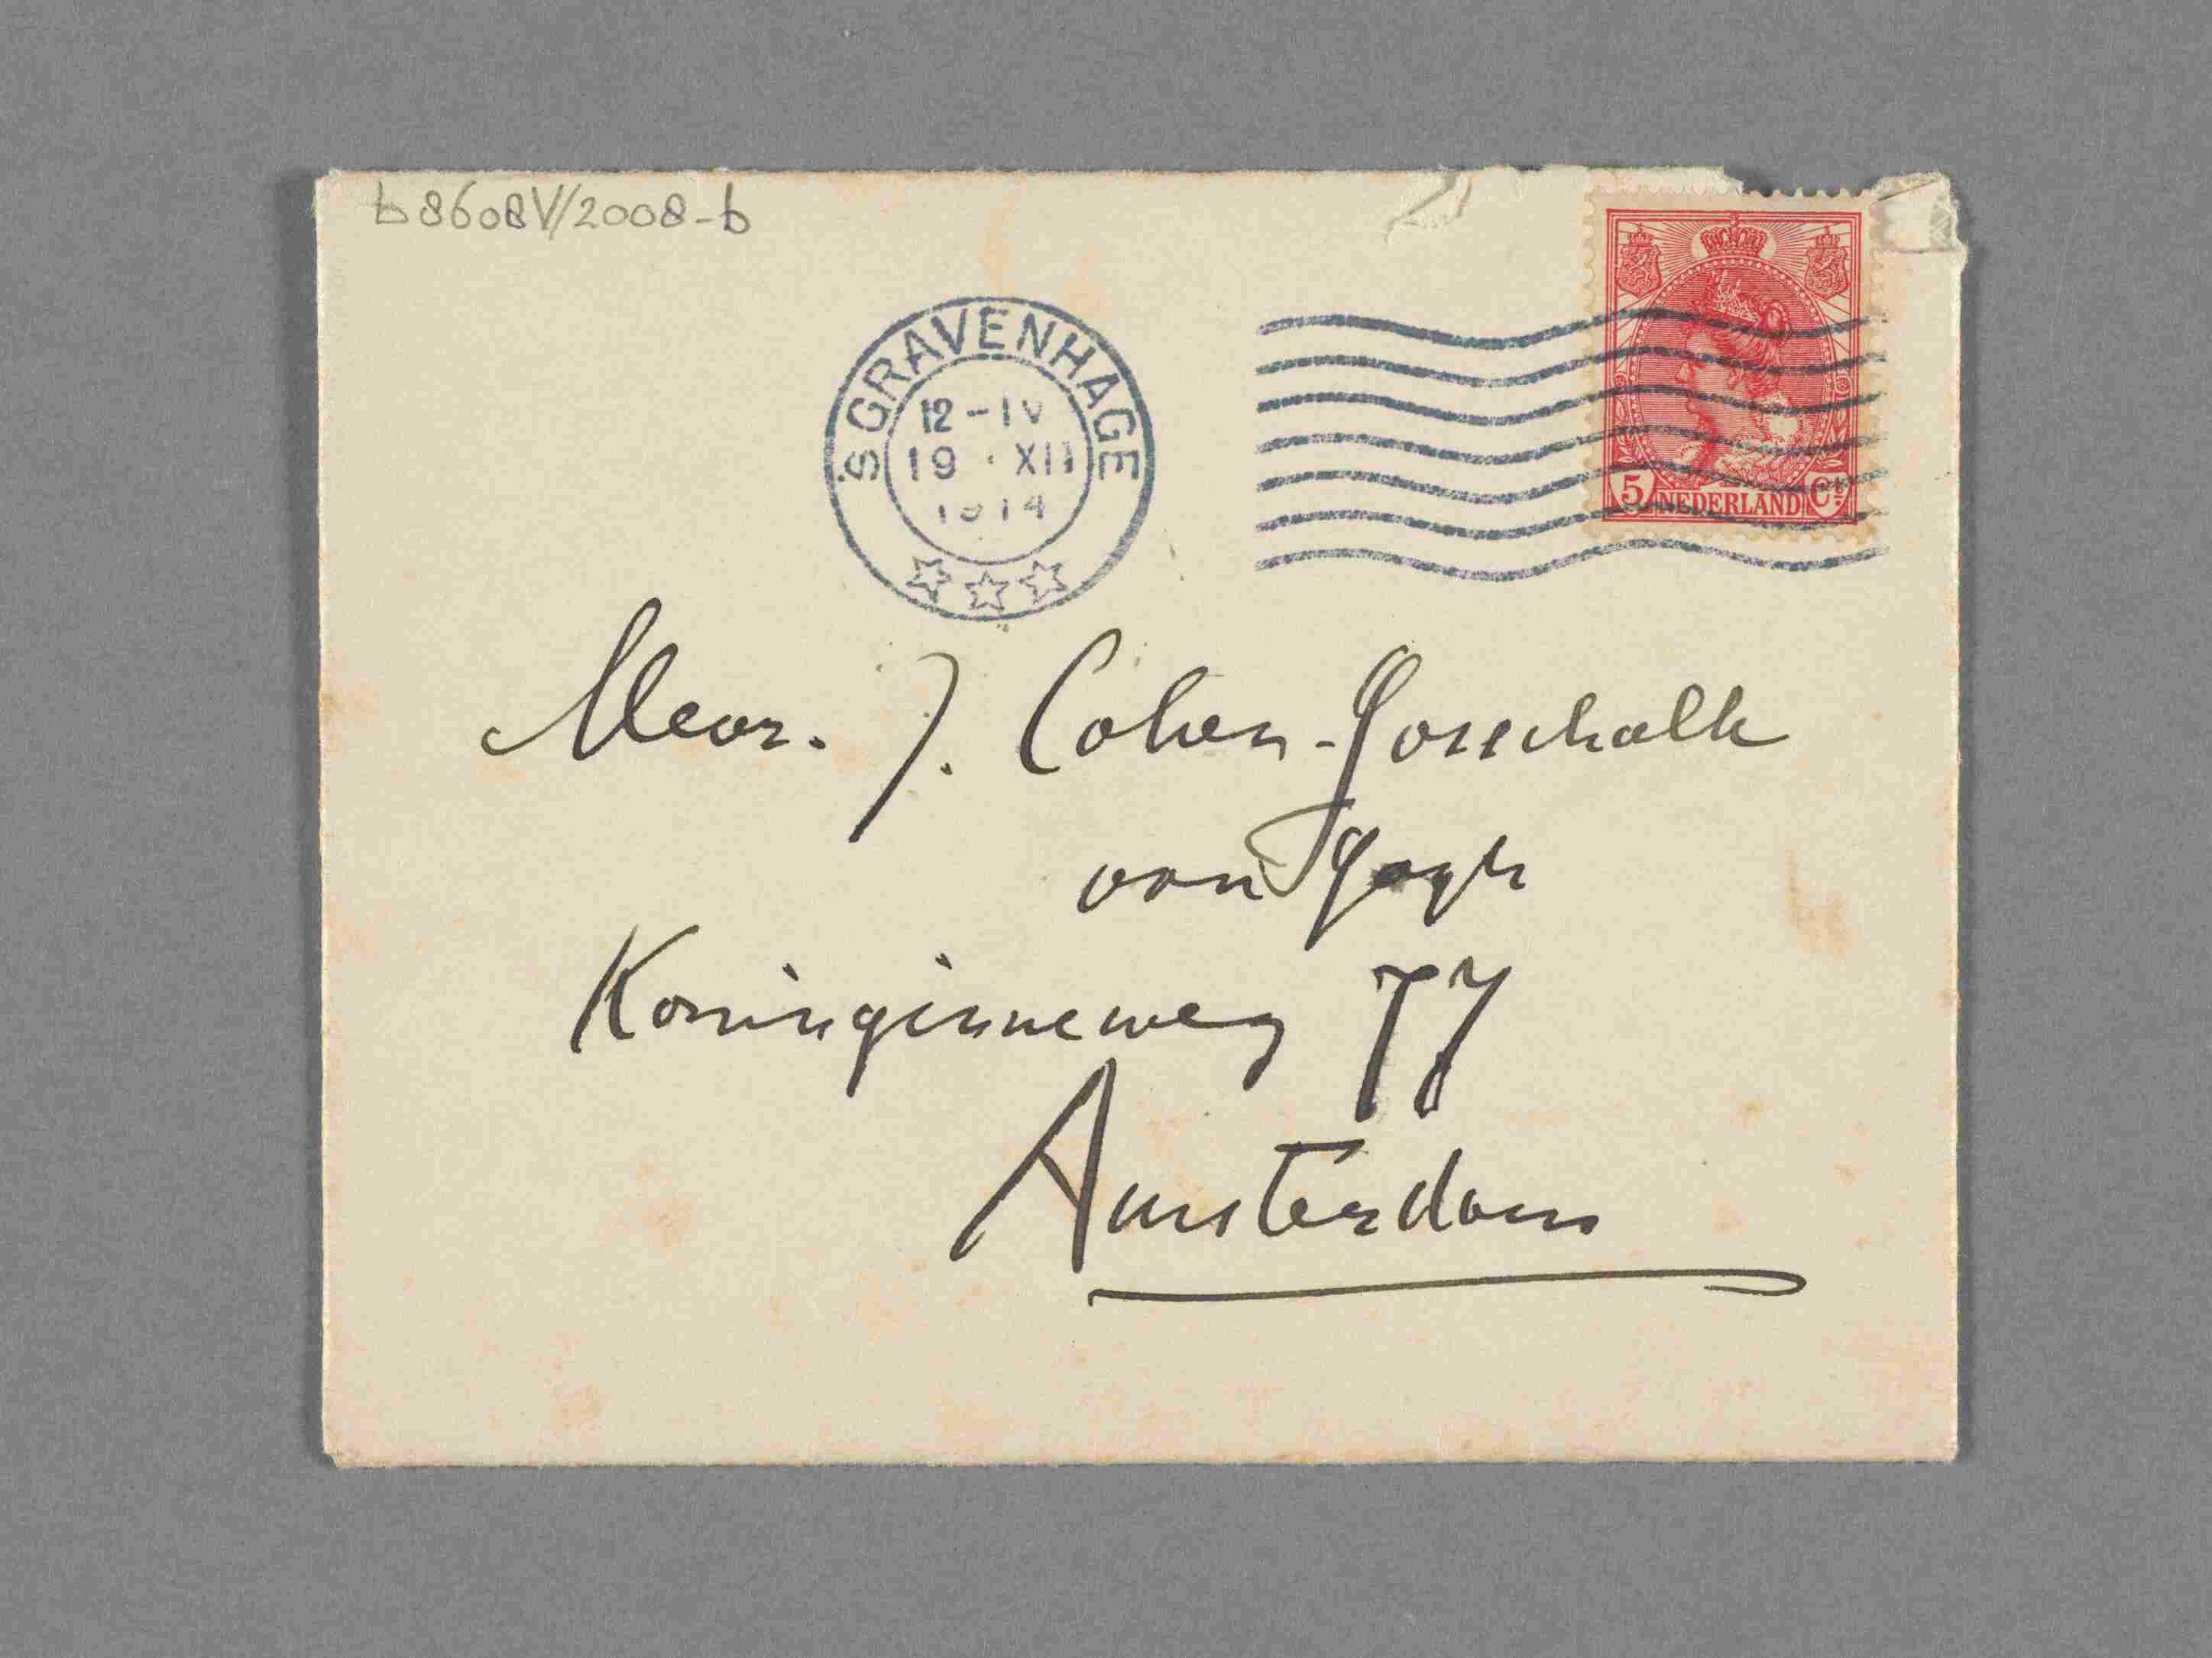 b8608V/2008-b
'S GRAVENHAGE
12-IV
19 · XII
1914
5 NEDERLAND Ct
Mevr. J. Cohen-Gosschalk
van Gogh
Koninginneweg 77
Amsterdam